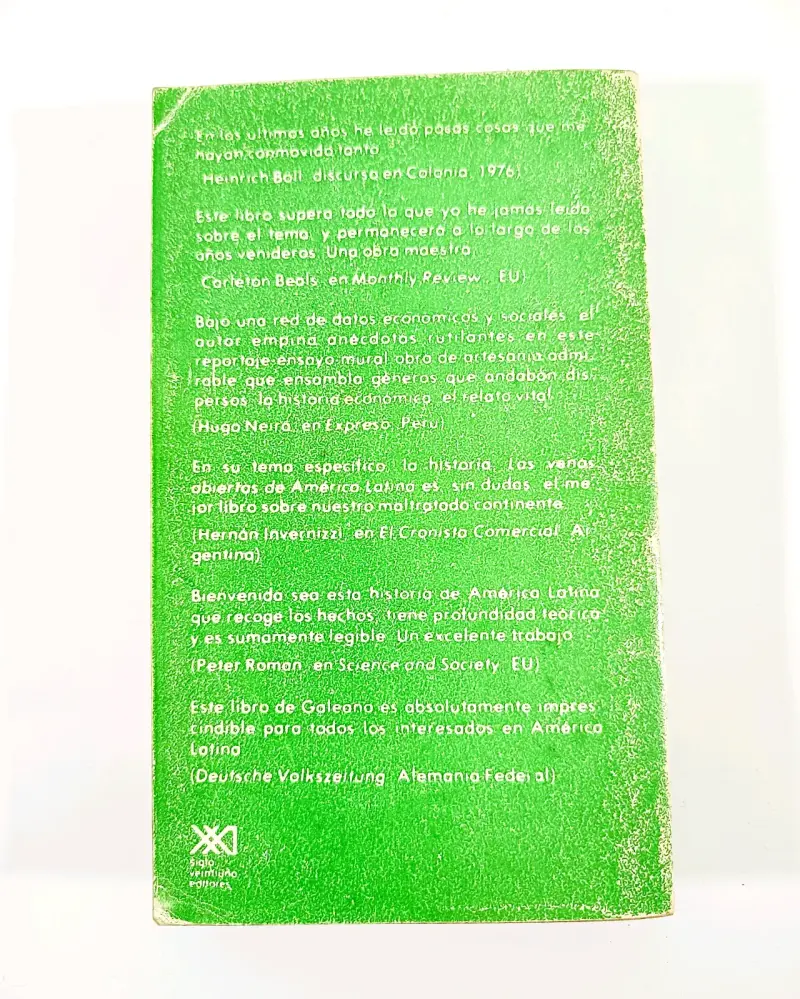 En los últimos años he leído pocas cosas que me
hayan conmovido tanto
(Heinrich Böll, discurso en Colonia, 1976)
Este libro supera todo lo que yo he jamás leído
sobre el tema, y permanecerá a lo largo de los
años venideros. Una obra maestra.
(Carleton Beals, en Monthly Review, EU)
Bajo una red de datos económicos y sociales, el
autor empina anécdotas rutilantes en este
reportaje-ensayo-mural, obra de artesanía admi-
rable que ensambla géneros que andaban dis-
persos: la historia económica, el relato vital
(Hugo Neira, en Expreso, Perú)
En su tema específico, la historia, Las venas
abiertas de América Latina es, sin dudas, el me-
jor libro sobre nuestro maltratado continente
(Hernán Invernizzi, en El Cronista Comercial, Ar-
gentina)
Bienvenida sea esta historia de América Latina
que recoge los hechos, tiene profundidad teórica
y es sumamente legible. Un excelente trabajo
(Peter Roman, en Science and Society, EU)
Este libro de Galeano es absolutamente impres-
cindible para todos los interesados en América
Latina
(Deutsche Volkszeitung, Alemania Federal)
siglo
veintiuno
editores